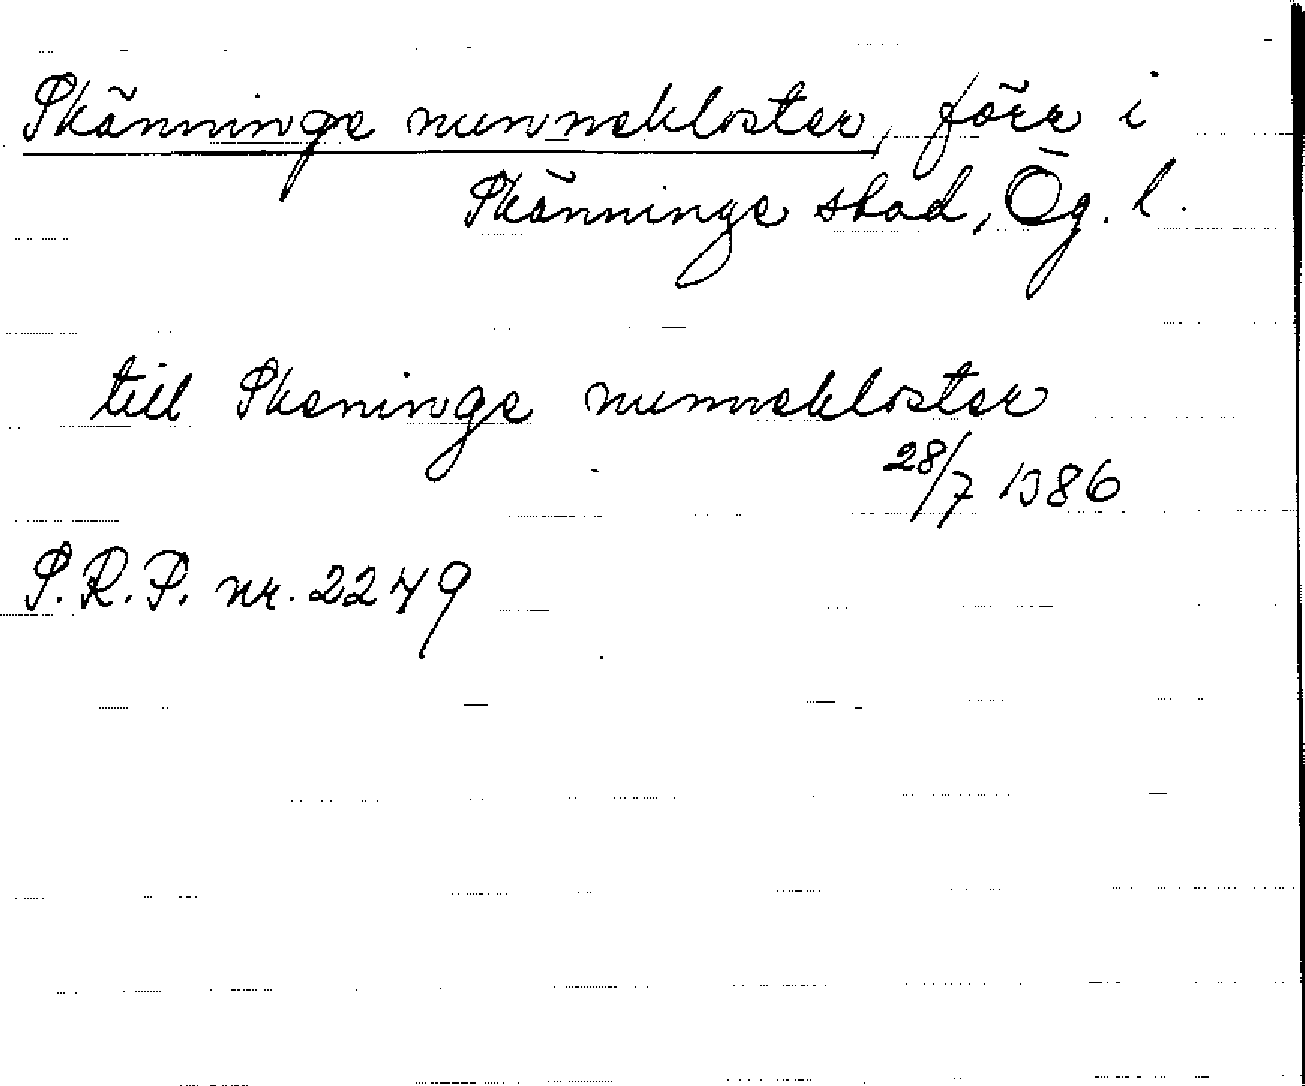 Skänninge nunnekloster, förr i
Skänninge stad, Ög. l.
till Skeninge nunnekloster
28/7 1386
S.R.P. nr. 2249